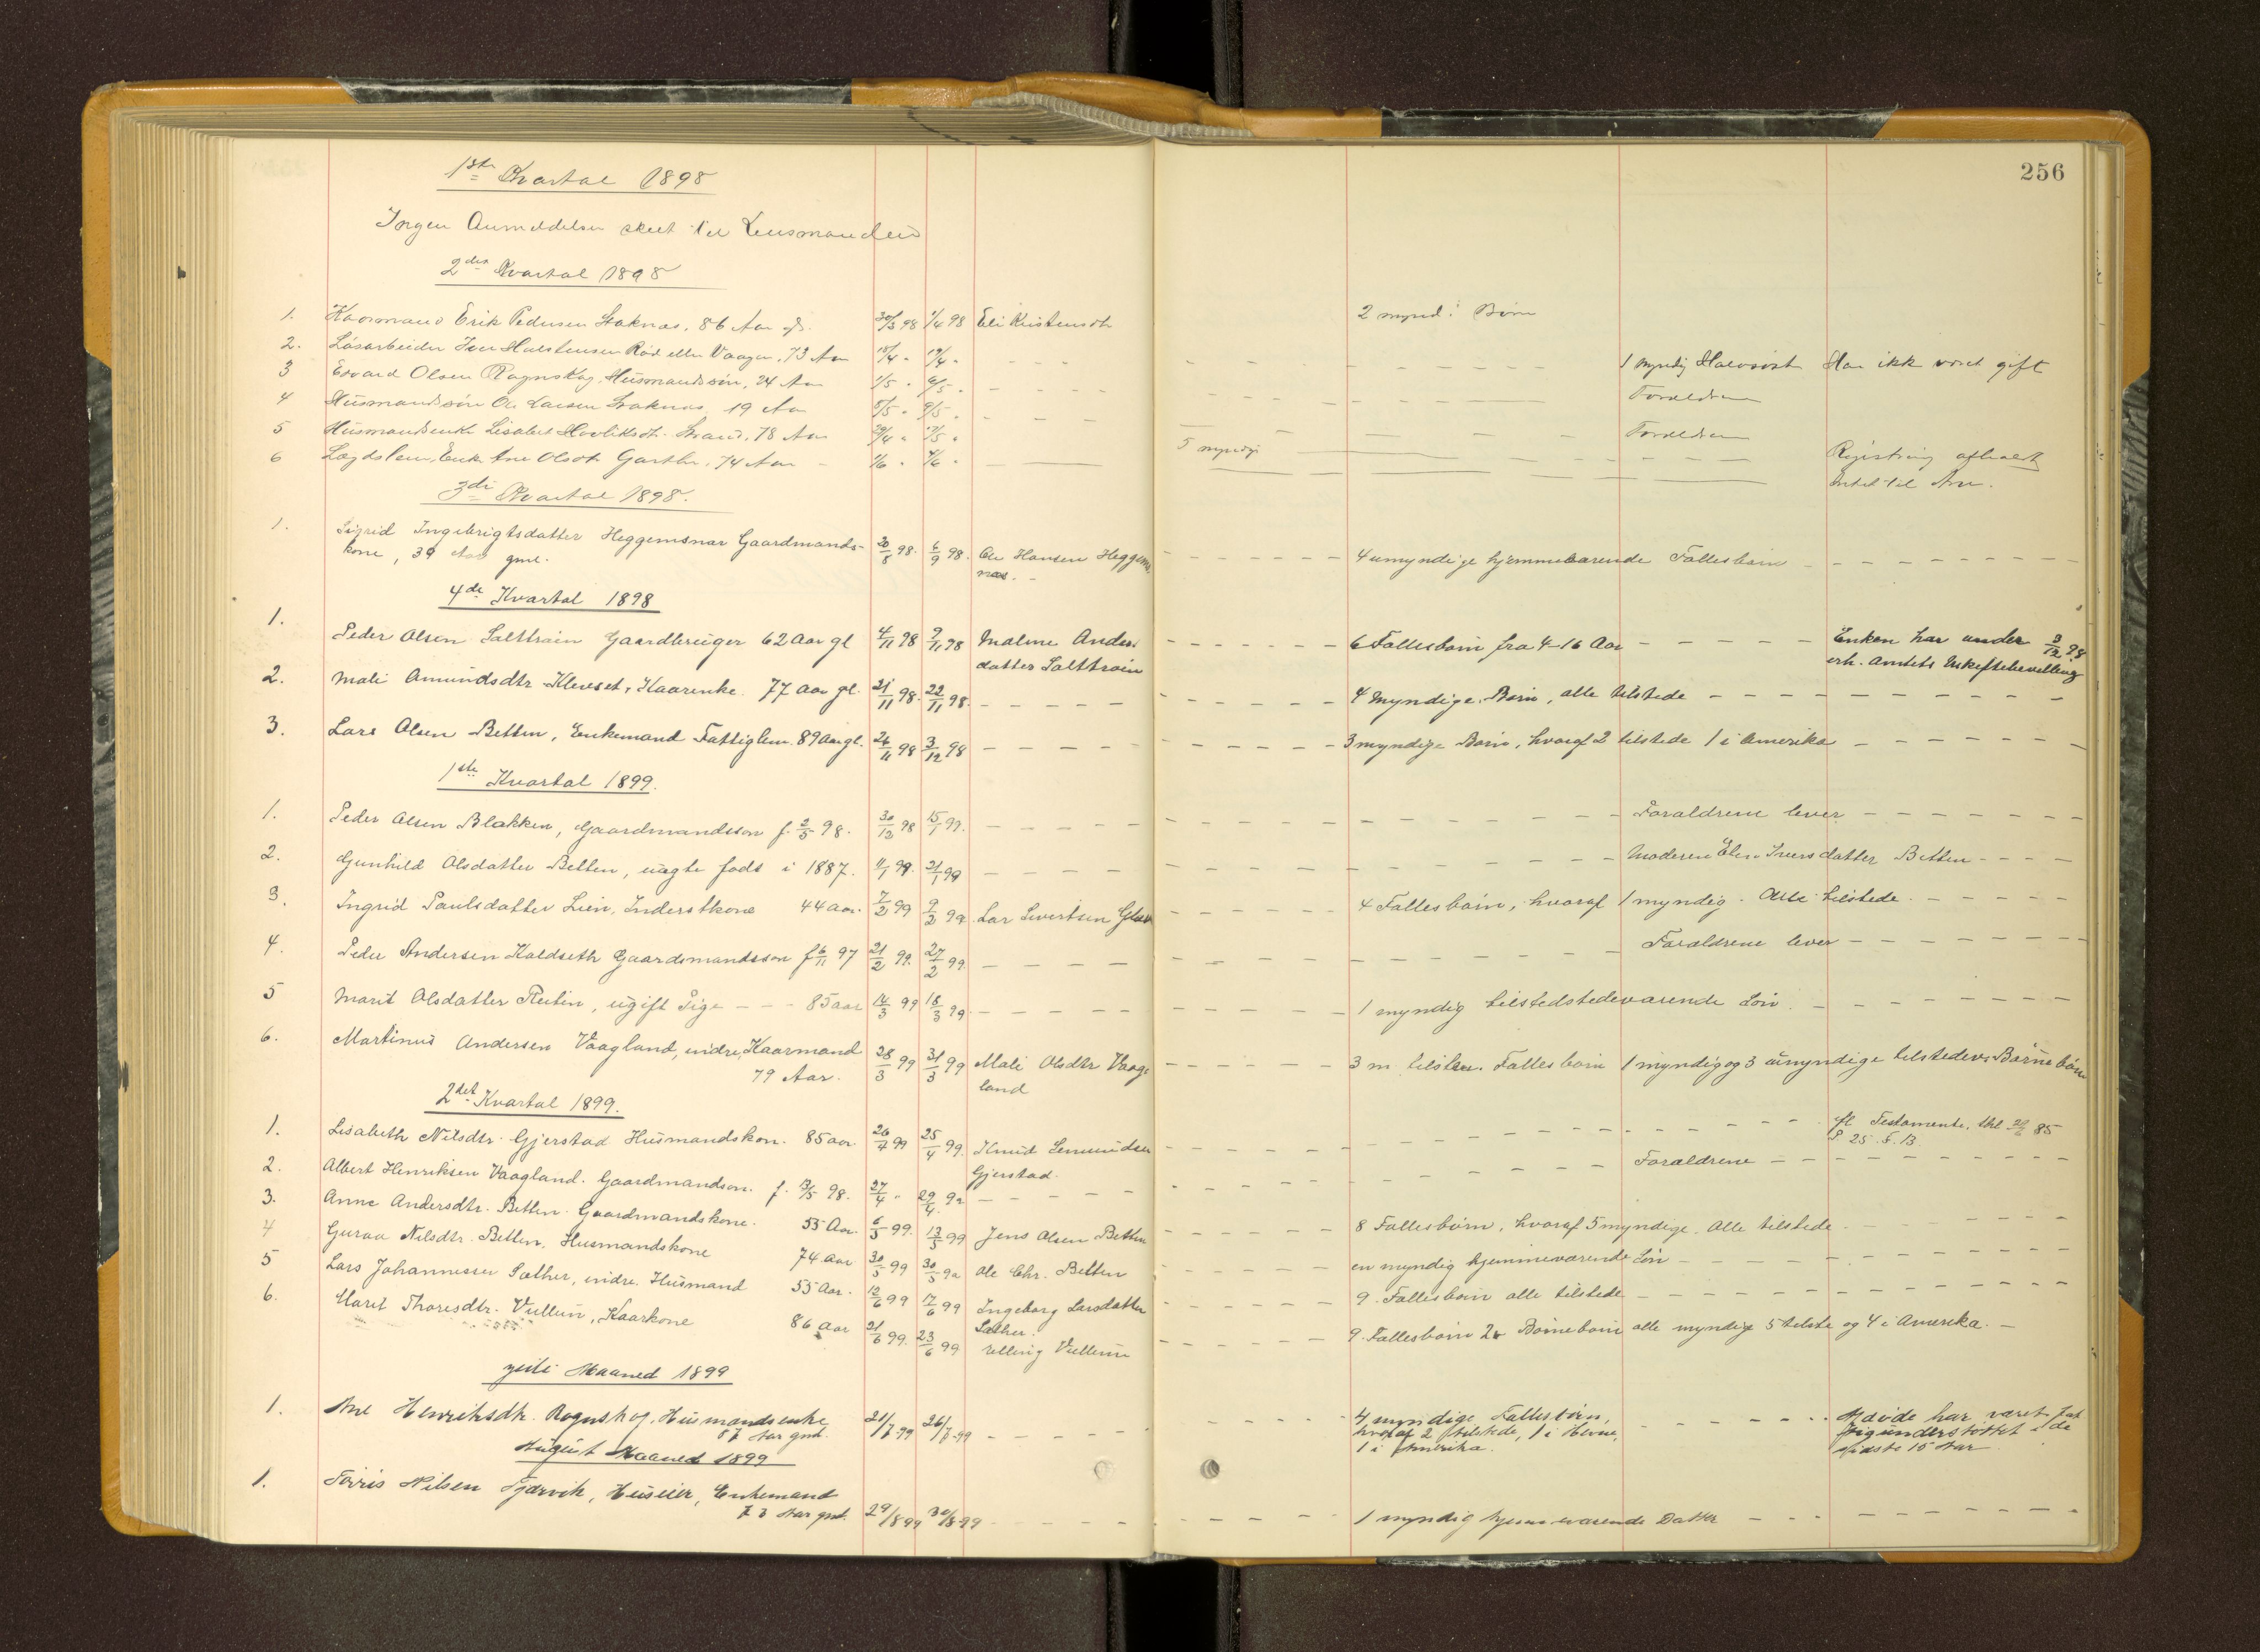 256
1ste Kvartal 1898
Ingen Anmeldelser skeet til Lensmanden
2det Kvartal 1898
1. Kaarmand Erik Pedersen Staknæs, 86 Aar gl. 30/3 98 1/4 98 Eli Kristensdt 2 mynd: Børn
2. Løsarbeider Iver Halstensen Rød eller Vaagen, 73 Aar 15/4 " 19/4 " - - - 1 myndig Halvsøst Har ikk vært gift
3 Edvard Olsen Rognskog, Husmandssøn, 24 Aar 1/5 " 6/5 " - - - Forældren
4 Husmandssøn Ole Larsen Staknæs 19 Aar 5/5 " 9/5 " - - - Forældren
5 Husmandsenke Lisabet Strand, 78 Aar 29/4 " 17/5 " 5 myndige - - - Registrering afholdt
6 Lægdslem, Enke Ane Olsdt Garthn, 74 Aar - 1/6 " 4/6 " - - - Intet til Arv.
3die Kvartal 1898.
1. Sigrid Ingebrigtsdatter Heggemsnæs Gaardmands- 20/8 98. 6/9 98. Ole Hansen Heggems - - - 4 umyndige hjemmeværende Fællesbørn - - -
kone, 39 Aar gml. næs. -
4de Kvartal 1898
1. Peder Olsen Salttrøin Gaardbruger 62 Aar gl 4/11 98 9/11 98 Malene Anders - - - 6 Fællesbørn fra 4-16 Aar - - - Enken har under 9/12 98
datter Salttrøin erh. Amtets Uskiftebevilling
2. Mali Amundsdtr Kleveset, Kaarenke. 77 Aar gl. 21/11 98. 22/11 98. - - - 4 Myndige Børn, alle tilstede - - -
3. Lars Olsen Betten, Enkemand Fattiglem. 89 Aar gl. 26/11 98 3/12 98 - - - 3 myndige Børn, hvoraf 2 tilstede 1 i Amerika - - -
1ste Kvartal 1899.
1. Peder Olsen Blakken, Gaardmandssøn f. 2/5 98. 30/12 98 15/1 99. - - - Forældrene lever - - -
2. Gunhild Olsdatter Betten, uægte født i 1887. 11/1 99. 21/1 99 - - - Moderen Elen Iversdatter Betten - - -
3. Ingrid Paulsdatter Lien, Inderstkone 44 Aar. 7/2 99 9/2 99 Lar Sivertsen - - - 4 Fællesbørn, hvoraf 1 myndig. Alle tilstede. - - -
4. Peder Andersen Koldseth Gaardsmandssøn f 6/11 97 21/2 99. 27/2 99. - - - Forældrene lever - - -
5 Marit Olsdatter Reitin, ugift Pige - - - 85 aar 14/3 99 18/3 99 - - - 1 myndig tilstedstedeværende Søn. - - -
6. Martinus Andersen Vaagland, indre, Kaarmand 28/3 99 31/3 99 Mali Olsdtr Vaag - - - 3 m. Fællesbørn 1 myndig og 3 umyndige tilstedev. Børnebørn
79 Aar. land
2det Kvartal 1899.
1. Lisabeth Nilsdtr. Gjerstad Husmandskon. 85 aar 26/2 99 25/4 99. Knud - - - Testamente, thl 21/6 85
Gjerstad. P 25 F. 13.
2. Albert Henriksen Vaagland. Gaardmandsøn. f. 13/5 98. 27/4 " 29/4 99 - - - Forældrene - - -
3. Anne Andersdtr. Betten. Gaardmandskone. 55 Aar. 6/5 99. 13/5 99 Jens Olsen Betten - - - 8 Fællesbørn, hvoraf 5 myndige. Alle tilstede - - -
4 Guraa Nilsdtr. Betten, Husmandskone 74 aar 30/5 99 30/5 99 Ole Chr. Betten - - - en myndig hjemmeværende Søn - - -
5 Lars Johannessen Sæther, indre. Husmand 55 Aar. 12/6 99 17/6 99 Ingeborg Larsdatter - - - 9. Fællesbørn alle tilstede - - -
Sæther.
6. Marit Thoresdtr. Vullum, Kaarkone 86 Aar 21/6 99. 23/6 99 Elling Vullum - - - 9. Fællesbørn 2 Børnebørn alle myndige 5 tilste og 4 i Amerika. -
Juli Maaned 1899
1. Ane Henriksdtr. Rognskog, Husmandsenke 21/7-99 26/7-99 - - - 4 myndige Fællesbørn, - - - Afdøde har været fat
87 Aar gml. hvoraf 2 tilstede, 1 i tigunderstøttet i de
1 i Amerika. sidste 15 Aar
August Maaned 1899
1. Tørris Nilsen Tjørvik, Huseier, Enkemand
73 Aar gml. 29/8 99 30/8-99 - - - 1 myndig hjemmeværende Datter - - -